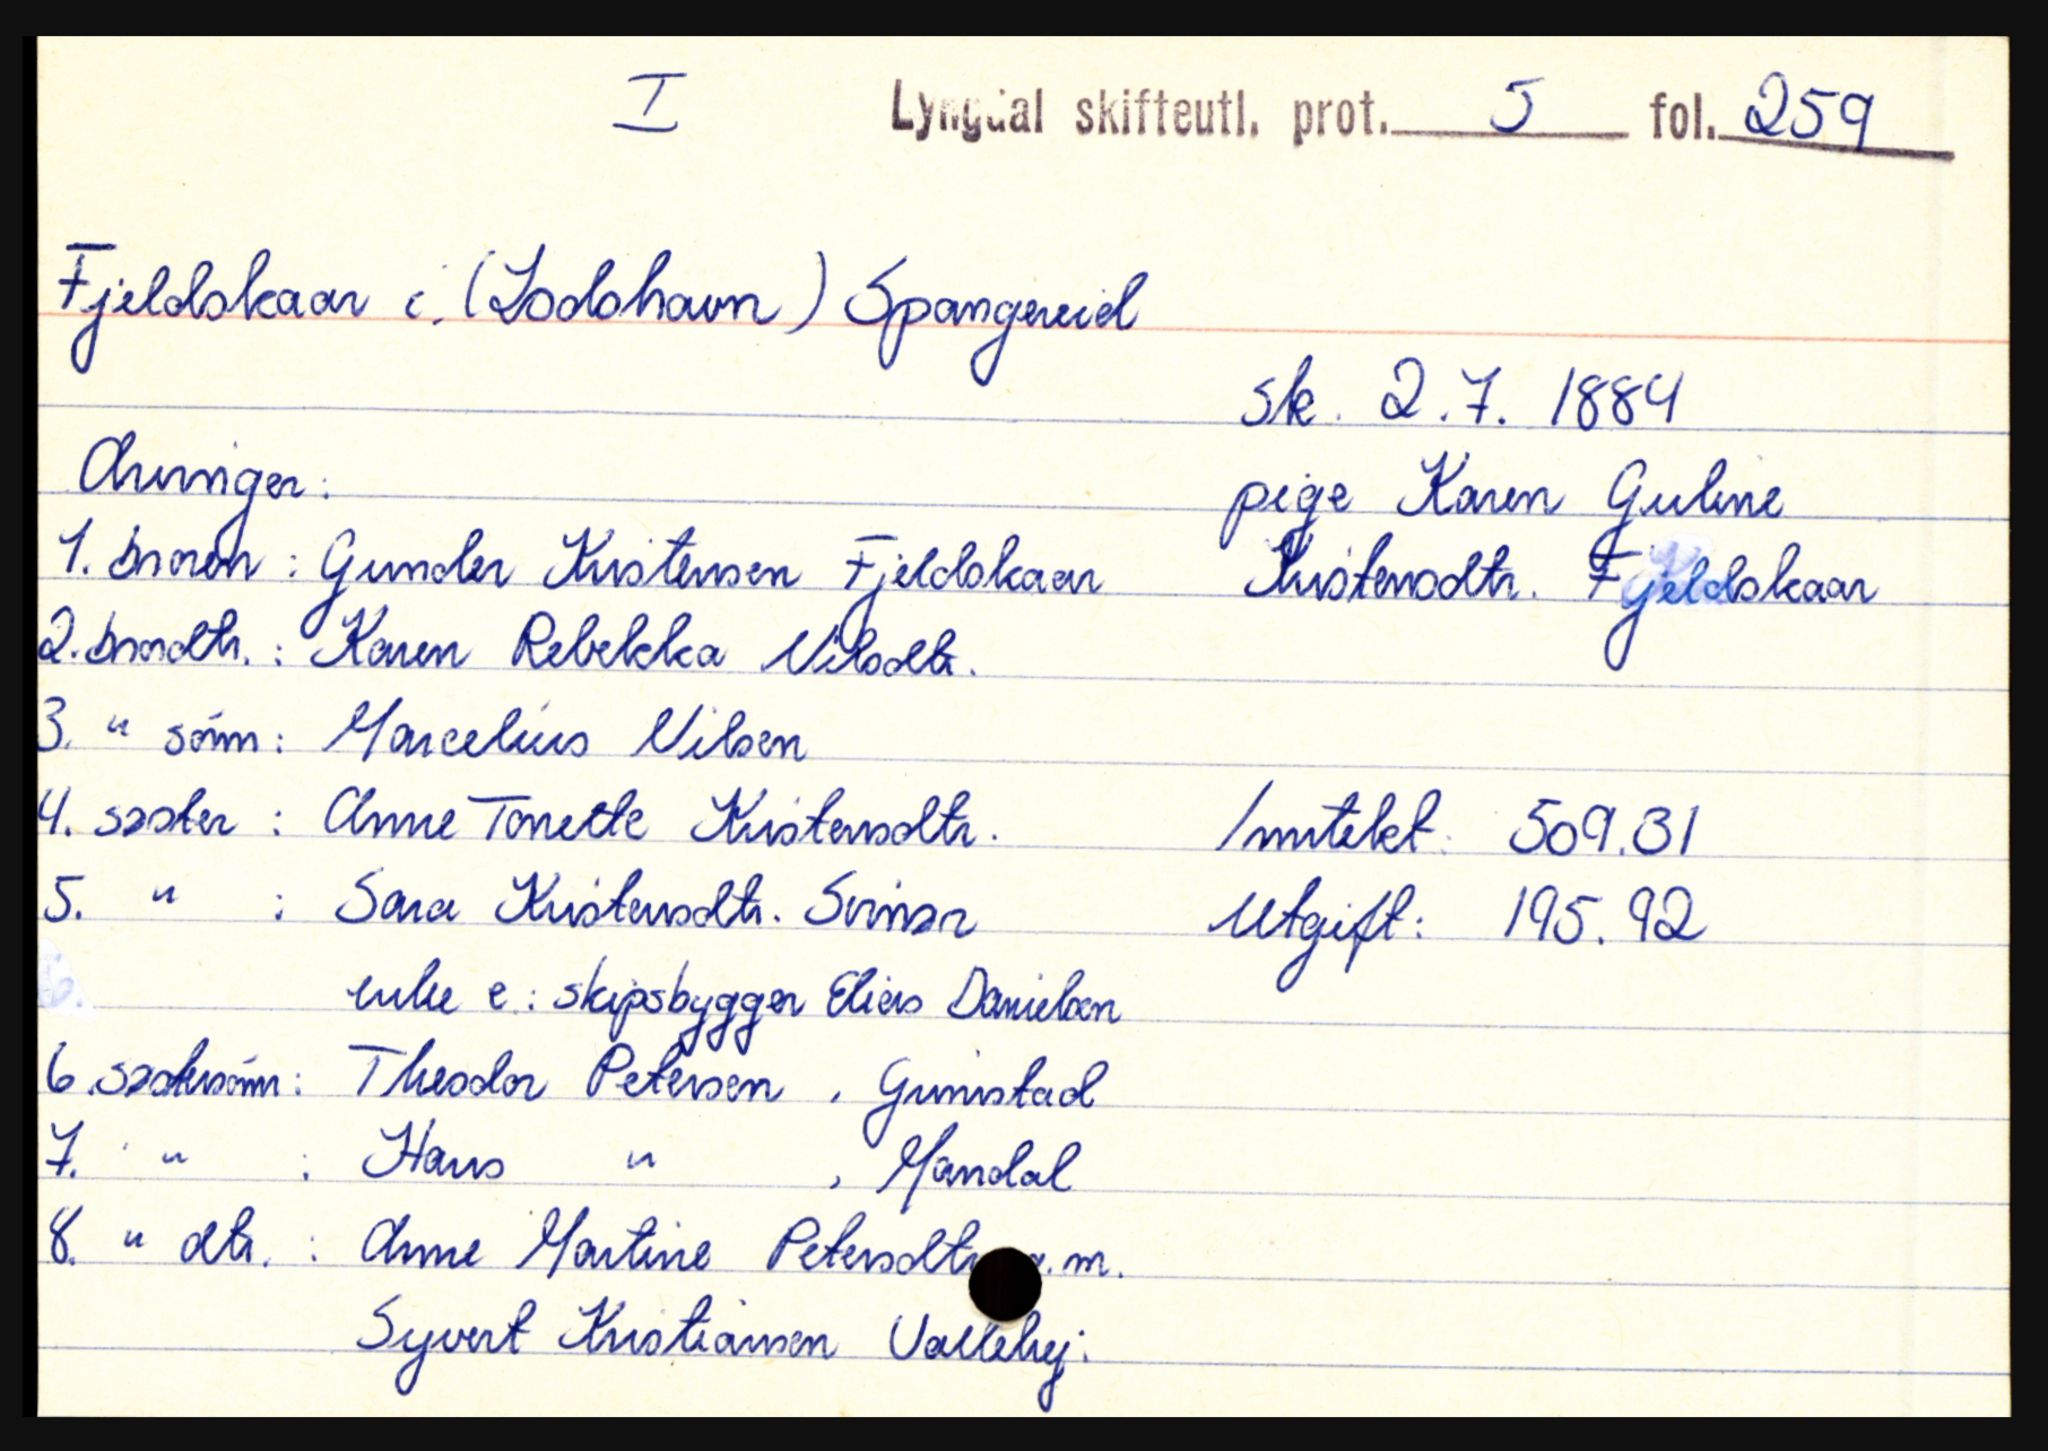 I Lyngdal skifteutl. prot. 5 fol. 259
Fjeldskaar i (Lodshavn) Spangereid
sk. 2.7. 1884
Arvinger:
pige Karen Guline
Kristensdtr. Fjeldskaar
1. broren: Gunder Kristensen Fjeldskaar
2. brordtr.: Karen Rebekka Nilsdtr.
3. " sønn: Marcelius Nilsen
4. søster : Anne Tonette Kristensdtr.
Inntekt: 509.31
5. " : Sara Kristensdtr. Svinør
Utgift: 195.92
enke e: skipsbygger Elias Danielsen
6. søstersønn: Theodor Petersen, Grimstad
7. " : Hans " , Mandal
8. " dtr. : Anne Martine Petersdtr. g.m.
Syvert Kristiansen Vallehej.